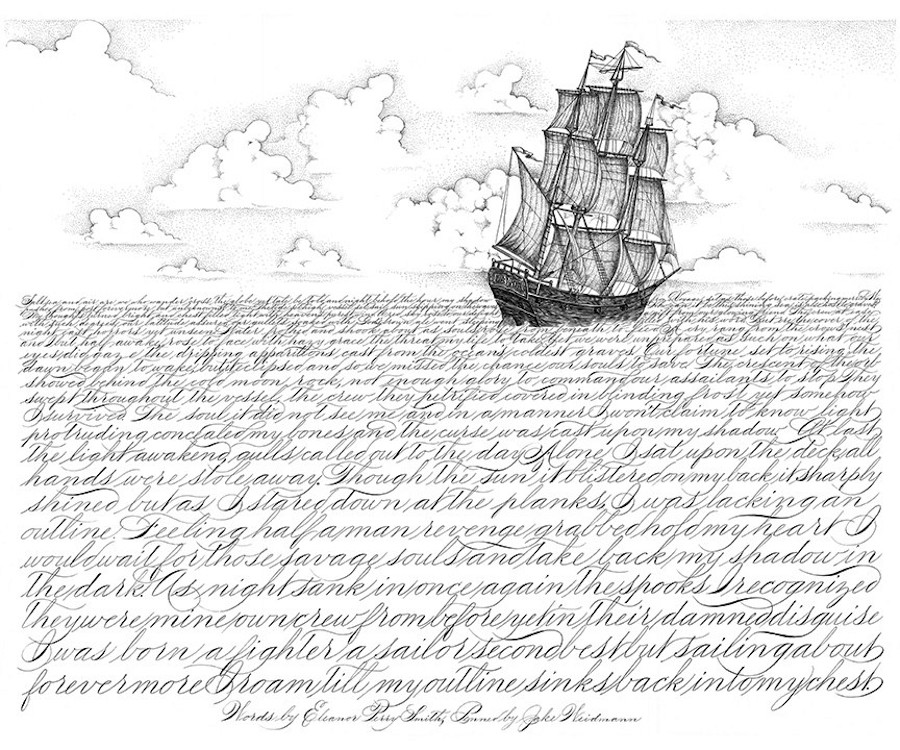 Salt sea and air are we who wander cross the globe
A cry rang from the crow's nest
and soul half awake rose to face with hazy grace the threat my life to take yet we were unprepared as such on what our
eyes did gaze the dripping apparitions cast from the oceans coldest graves Our fortune set to rising the
dawn began to wake but eclipsed and so we missed the chance our souls to save The crescent of
showed behind the cold moon rock, not enough glory to command our assailants to stop They
swept throughout the vessel, the crew they petrified covered in blinding frost yet somehow
I survived The soul it did not see me and in a manner I won't claim to know light
protruding concealed my bones and the curse was cast upon my shadow. At last
the light awakeng gulls called out to the day Alone, I sat upon the deck, all
hands were stole away. Though the sun it blistered on my back it sharply
shined but as I stared down at the planks, I was lacking an
outline. Feeling half a man revenge grabbed hold my heart I
would wait for those savage souls and take back my shadow in
the dark. As night sank in once again the spooks I recognized
they were mine own crew from before yet in their damned disguise
I was born a fighter a sailor second best but sailing about
forevermore I roam till my outline sinks back into my chest.
Words by Eleanor Perry Smith, Penned by Jake Weidmann